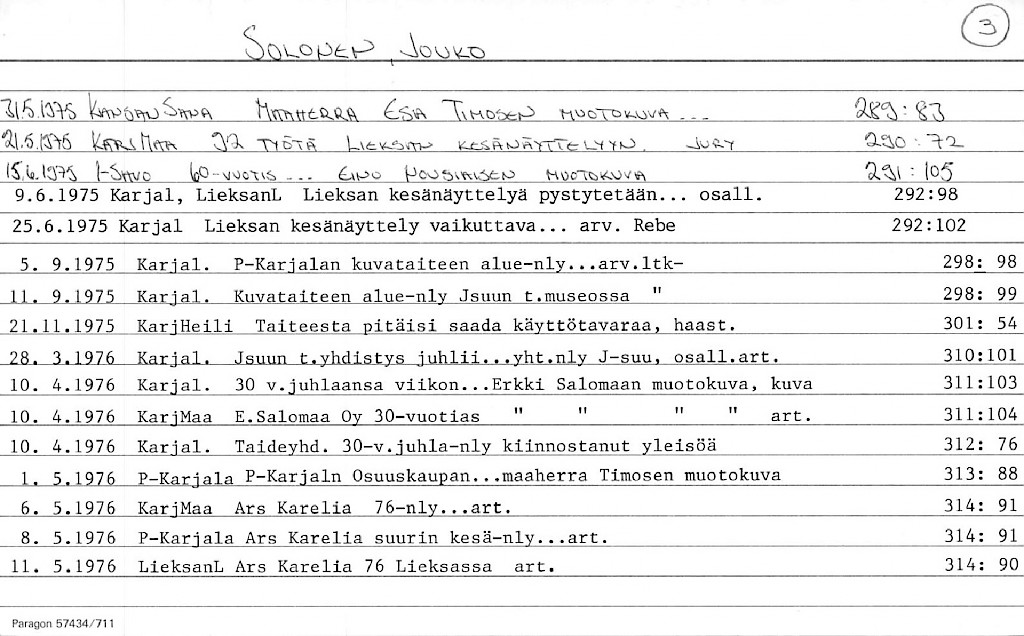 3
SOLONEN, JOUKO
31.5.1975 KANSAN SANA MAAHERRA ESA TIMOSEN MUOTOKUVA ... 289:83
21.5.1975 KARJMAA 92 TYÖTÄ LIEKSAN KESÄNÄYTTELYYN. JURY 290:72
15.6.1975 I-SAVO 60-VUOTIS... EINO HOUSIAISEN MUOTOKUVA 291:105
9.6.1975 Karjal, LieksanL Lieksan kesänäyttelyä pystytetään... osall. 292:98
25.6.1975 Karjal Lieksan kesänäyttely vaikuttava... arv. Rebe 292:102
5. 9.1975 Karjal. P-Karjalan kuvataiteen alue-nly...arv.ltk- 298: 98
11. 9.1975 Karjal. Kuvataiteen alue-nly Jsuun t.museossa " 298: 99
21.11.1975 KarjHeili Taiteesta pitäisi saada käyttötavaraa, haast. 301: 54
28. 3.1976 Karjal. Jsuun t.yhdistys juhlii...yht.nly J-suu, osall.art. 310:101
10. 4.1976 Karjal. 30 v.juhlaansa viikon...Erkki Salomaan muotokuva, kuva 311:103
10. 4.1976 KarjMaa E.Salomaa Oy 30-vuotias " " " " art. 311:104
10. 4.1976 Karjal. Taideyhd. 30-v.juhla-nly kiinnostanut yleisöä 312: 76
1. 5.1976 P-Karjala P-Karjaln Osuuskaupan...maaherra Timosen muotokuva 313: 88
6. 5.1976 KarjMaa Ars Karelia 76-nly...art. 314: 91
8. 5.1976 P-Karjala Ars Karelia suurin kesä-nly...art. 314: 91
11. 5.1976 LieksanL Ars Karelia 76 Lieksassa art. 314: 90
Paragon 57434/711